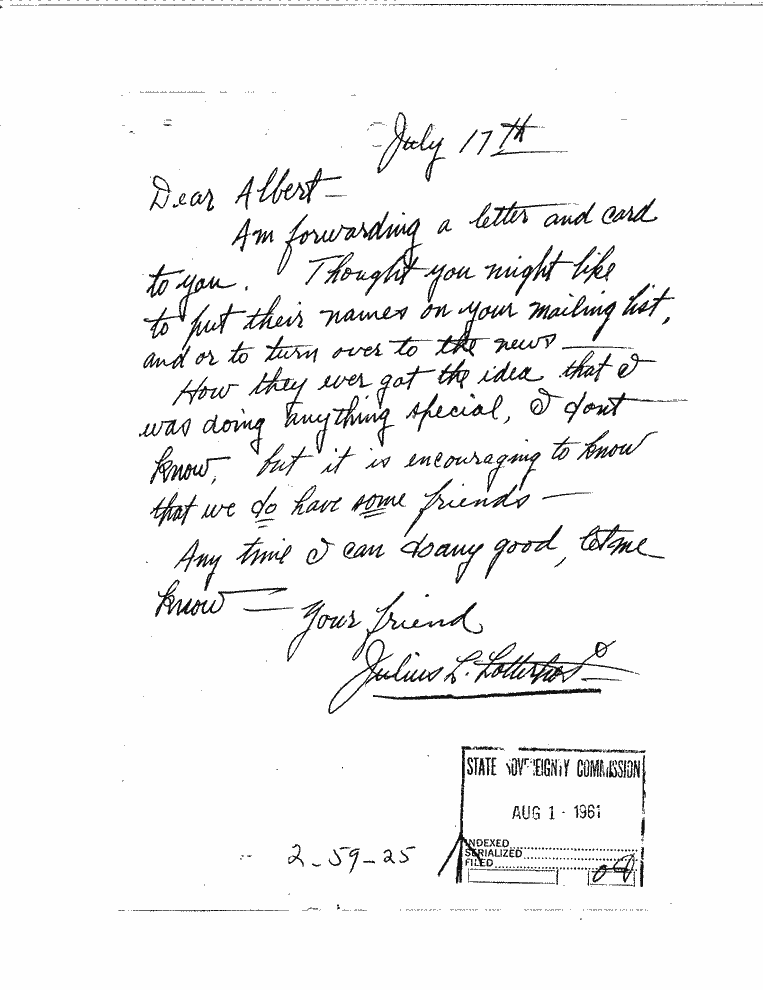 July 17th
Dear Albert—
Am forwarding a letter and card
to you. Thought you might like
to put their names on your mailing list,
and or to turn over to the news—
How they ever got the idea that I
was doing anything special, I dont
know, but it is encouraging to know
that we do have some friends—
Any time I can do any good, let me
know— Your friend
Julius L. Lotterhos
STATE SOVEREIGNTY COMMISSION
AUG 1 - 1961
INDEXED
SERIALIZED
FILED
2-59-25